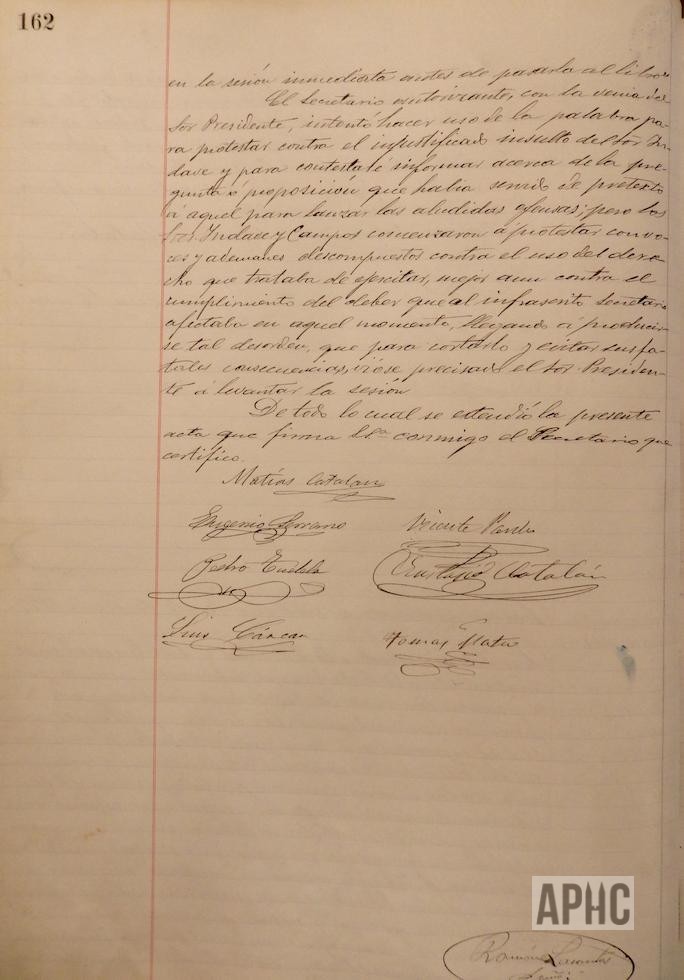 162
en la sesión inmediata antes de pasarla al libro
El Secretario autorizante, con la venia del
Sor Presidente, intentó hacer uso de la palabra pa-
ra protestar contra el injustificado insulto del Sor In-
dave y para contestar é informar acerca de la pre-
gunta ó proposición que había servido de pretexto
á aquel para lanzar las aludidas ofensas; pero los
Sres Indave y Campos comenzaron á protestar con vo-
ces y ademanes descompuestos contra el uso del dere-
cho que trataba de ejercitar, mejor aun contra el
cumplimiento del deber que al infrascrito Secretario
afectaba en aquel momento, llegando á producir-
se tal desorden, que para cortarlo y evitar sus fa-
tales consecuencias, vióse precisado el Sor Presiden-
te á levantar la sesión
De todo lo cual se extendió la presente
acta que firma conmigo el Secretario que
certifico.
Matías Catalan
Eugenio Serrano Vicente
Pedro Tudela Eustaquio Catalán
Luis Cárcar Tomas Mateo
Ramón
APHC